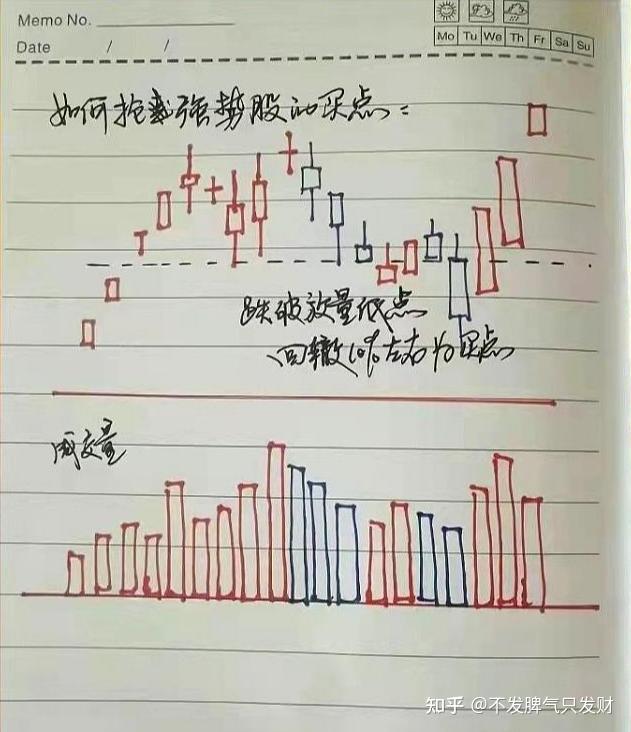 Memo No.
Date / /
Mo Tu We Th Fr Sa Su
如何抢到强势股的买点:
跌破放量低点
回撤10%左右为买点
成交量
知乎 @不发脾气只发财